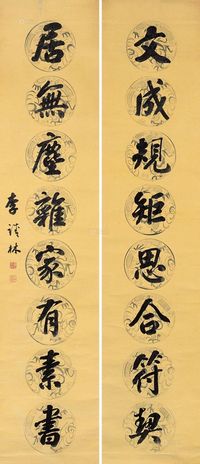 文成規矩思合符契
居無塵雜家有素書
李謹林